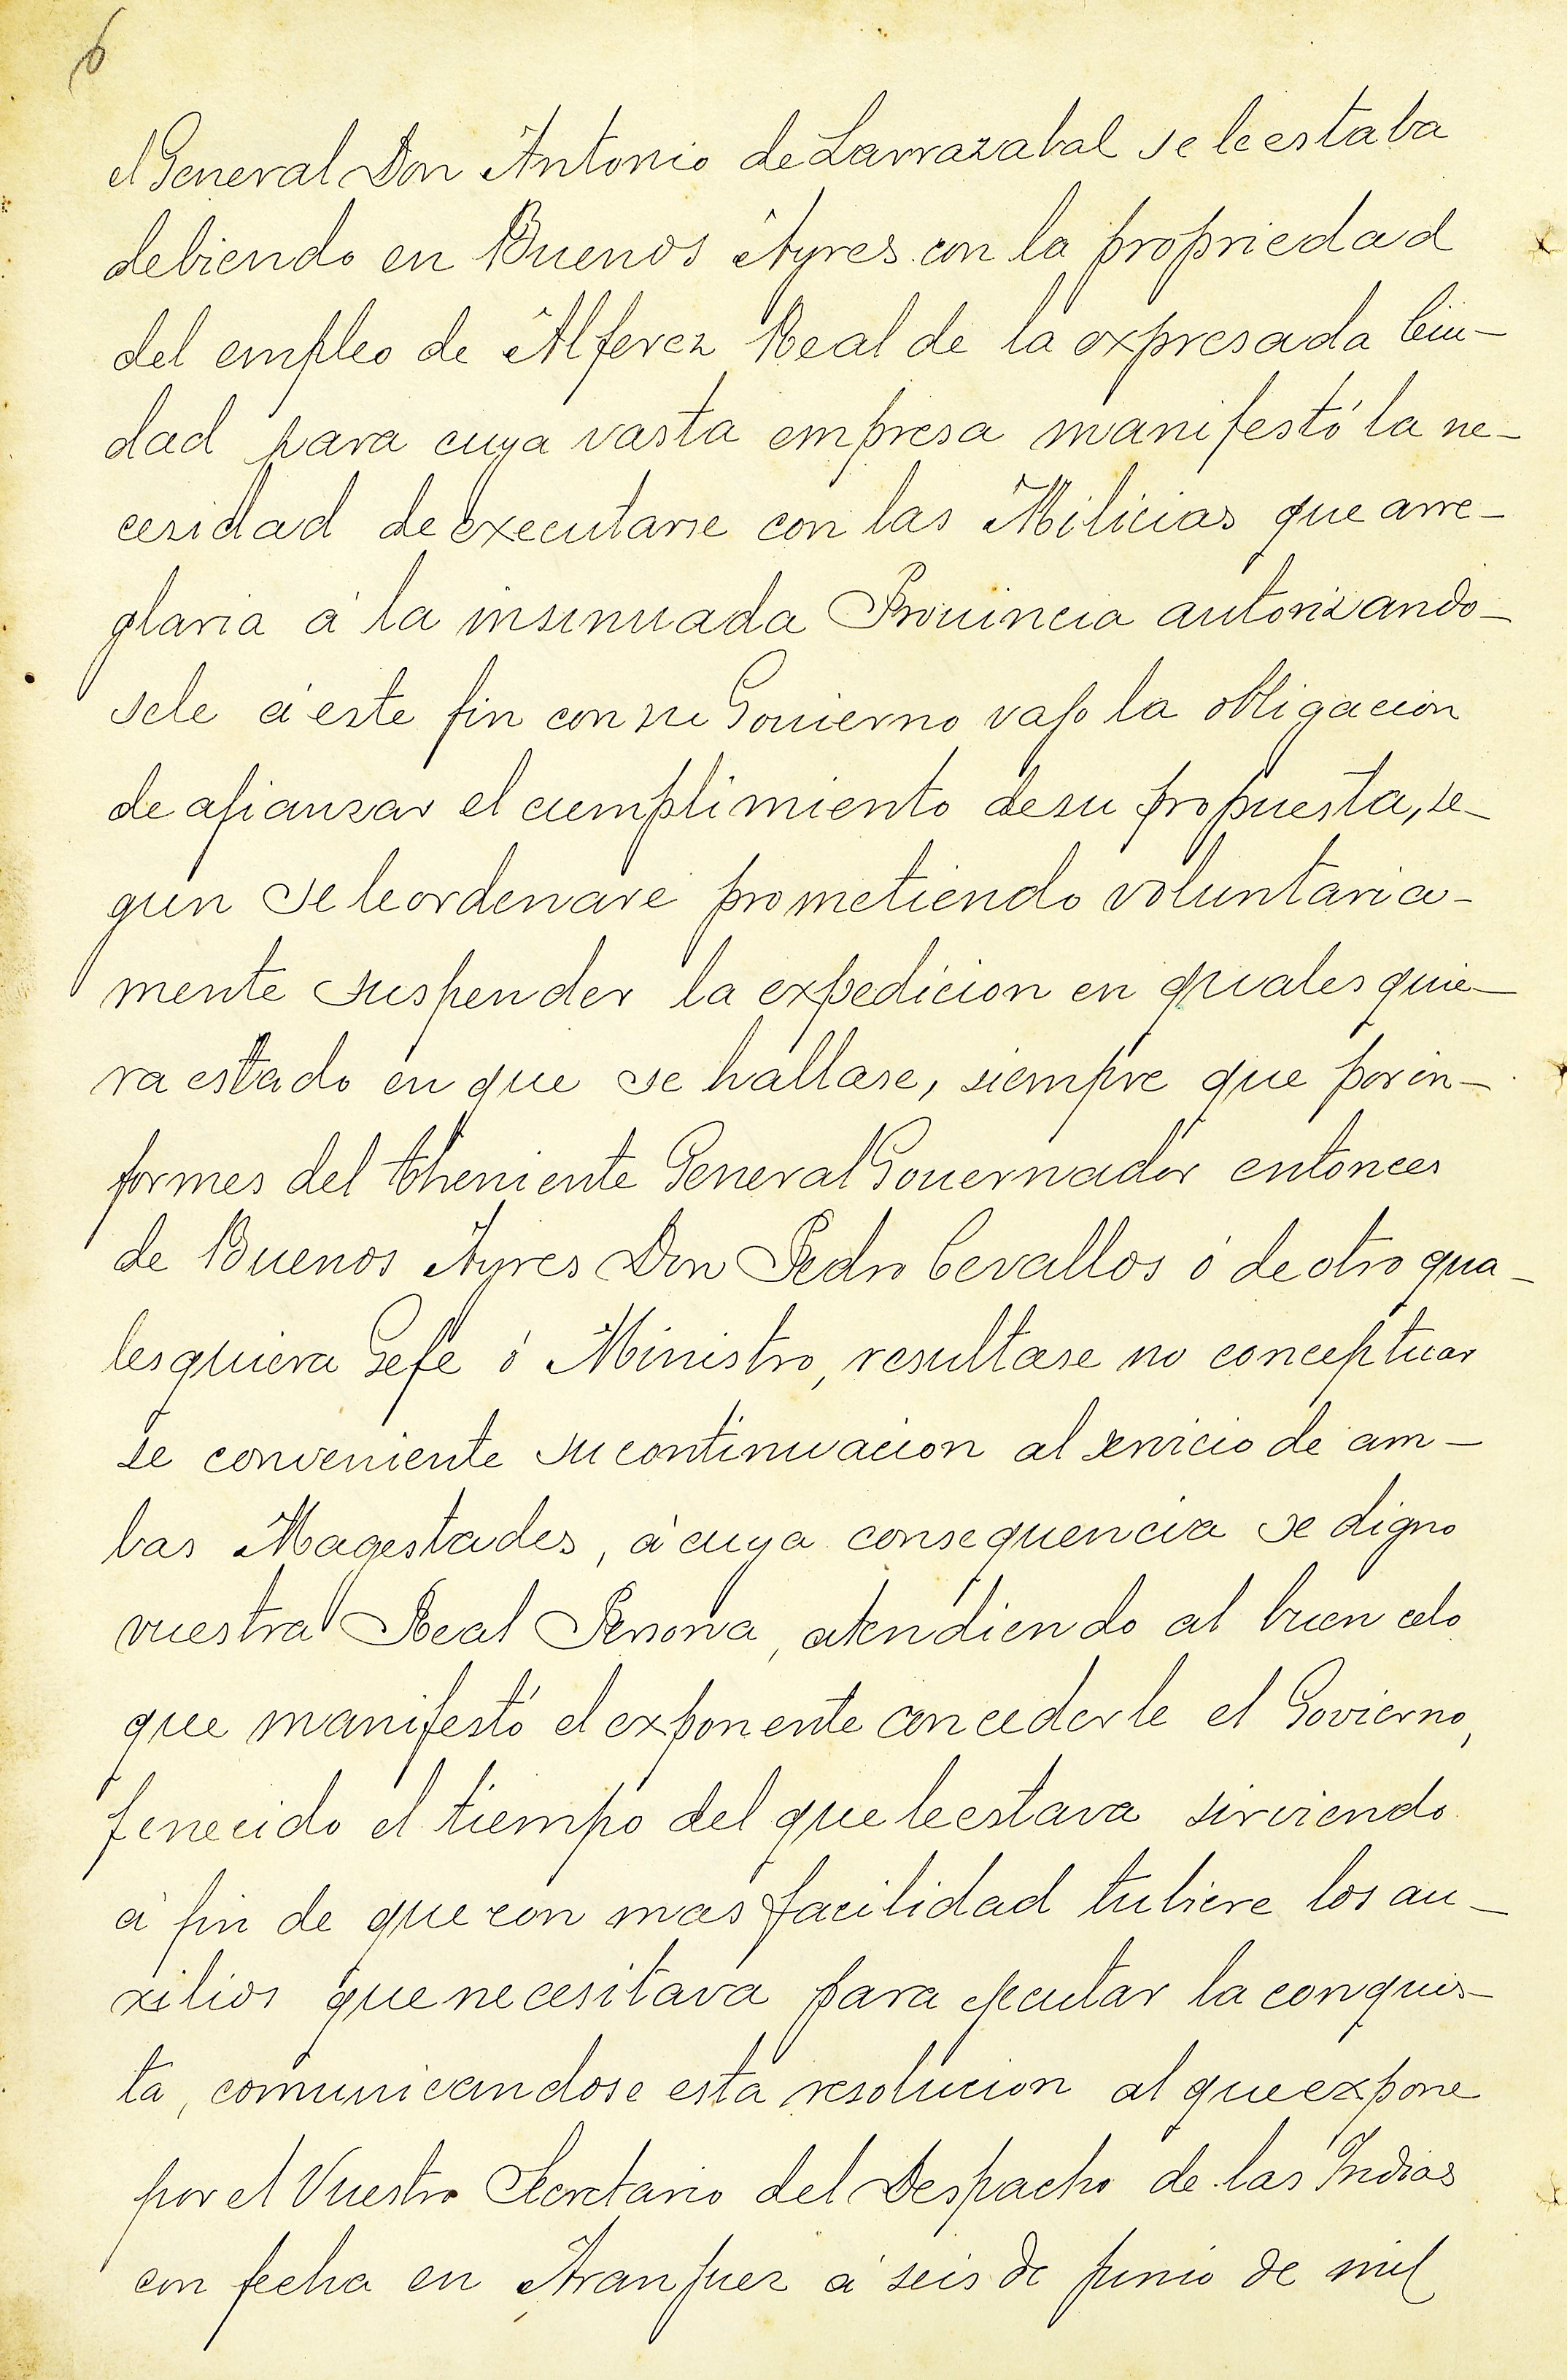 6
el General Don Antonio de Larrazabal se le estaba
debiendo en Buenos Ayres con la propriedad
del empleo de Alferez Real de la expresada Ciu-
dad para cuya vasta empresa manifestó la ne-
cesidad de executarse con las Milicias que arre-
glaria á la insinuada Prouincia autorizando-
sele á este fin con su Gouierno vajo la obligacion
de afianzar el cumplimiento de su propuesta, se-
gun se le ordenare prometiendo voluntaria-
mente suspender la expedicion en quales quie-
ra estado en que se hallase, siempre que por in-
formes del theniente General Gouernador entonces
de Buenos Ayres Don Pedro Cevallos ó de otro qua-
lesquiera Gefe ó Ministro, resultase no conceptuar
se conveniente su continuacion al servicio de am-
bas Magestades, á cuya consequencia se digno
vuestra Real Persona, atendiendo al buen celo
que manifestó el exponente concederle el Govierno,
fenecido el tiempo del que le estava sirviendo
á fin de que con mas facilidad tubiere los au-
xilios que necesitava para ejecutar la conquis-
ta, comunicandose esta resolucion al que expone
por el Vuestro Secretario del Despacho de las Indias
con fecha en Aranjuez á seis de junio de mil